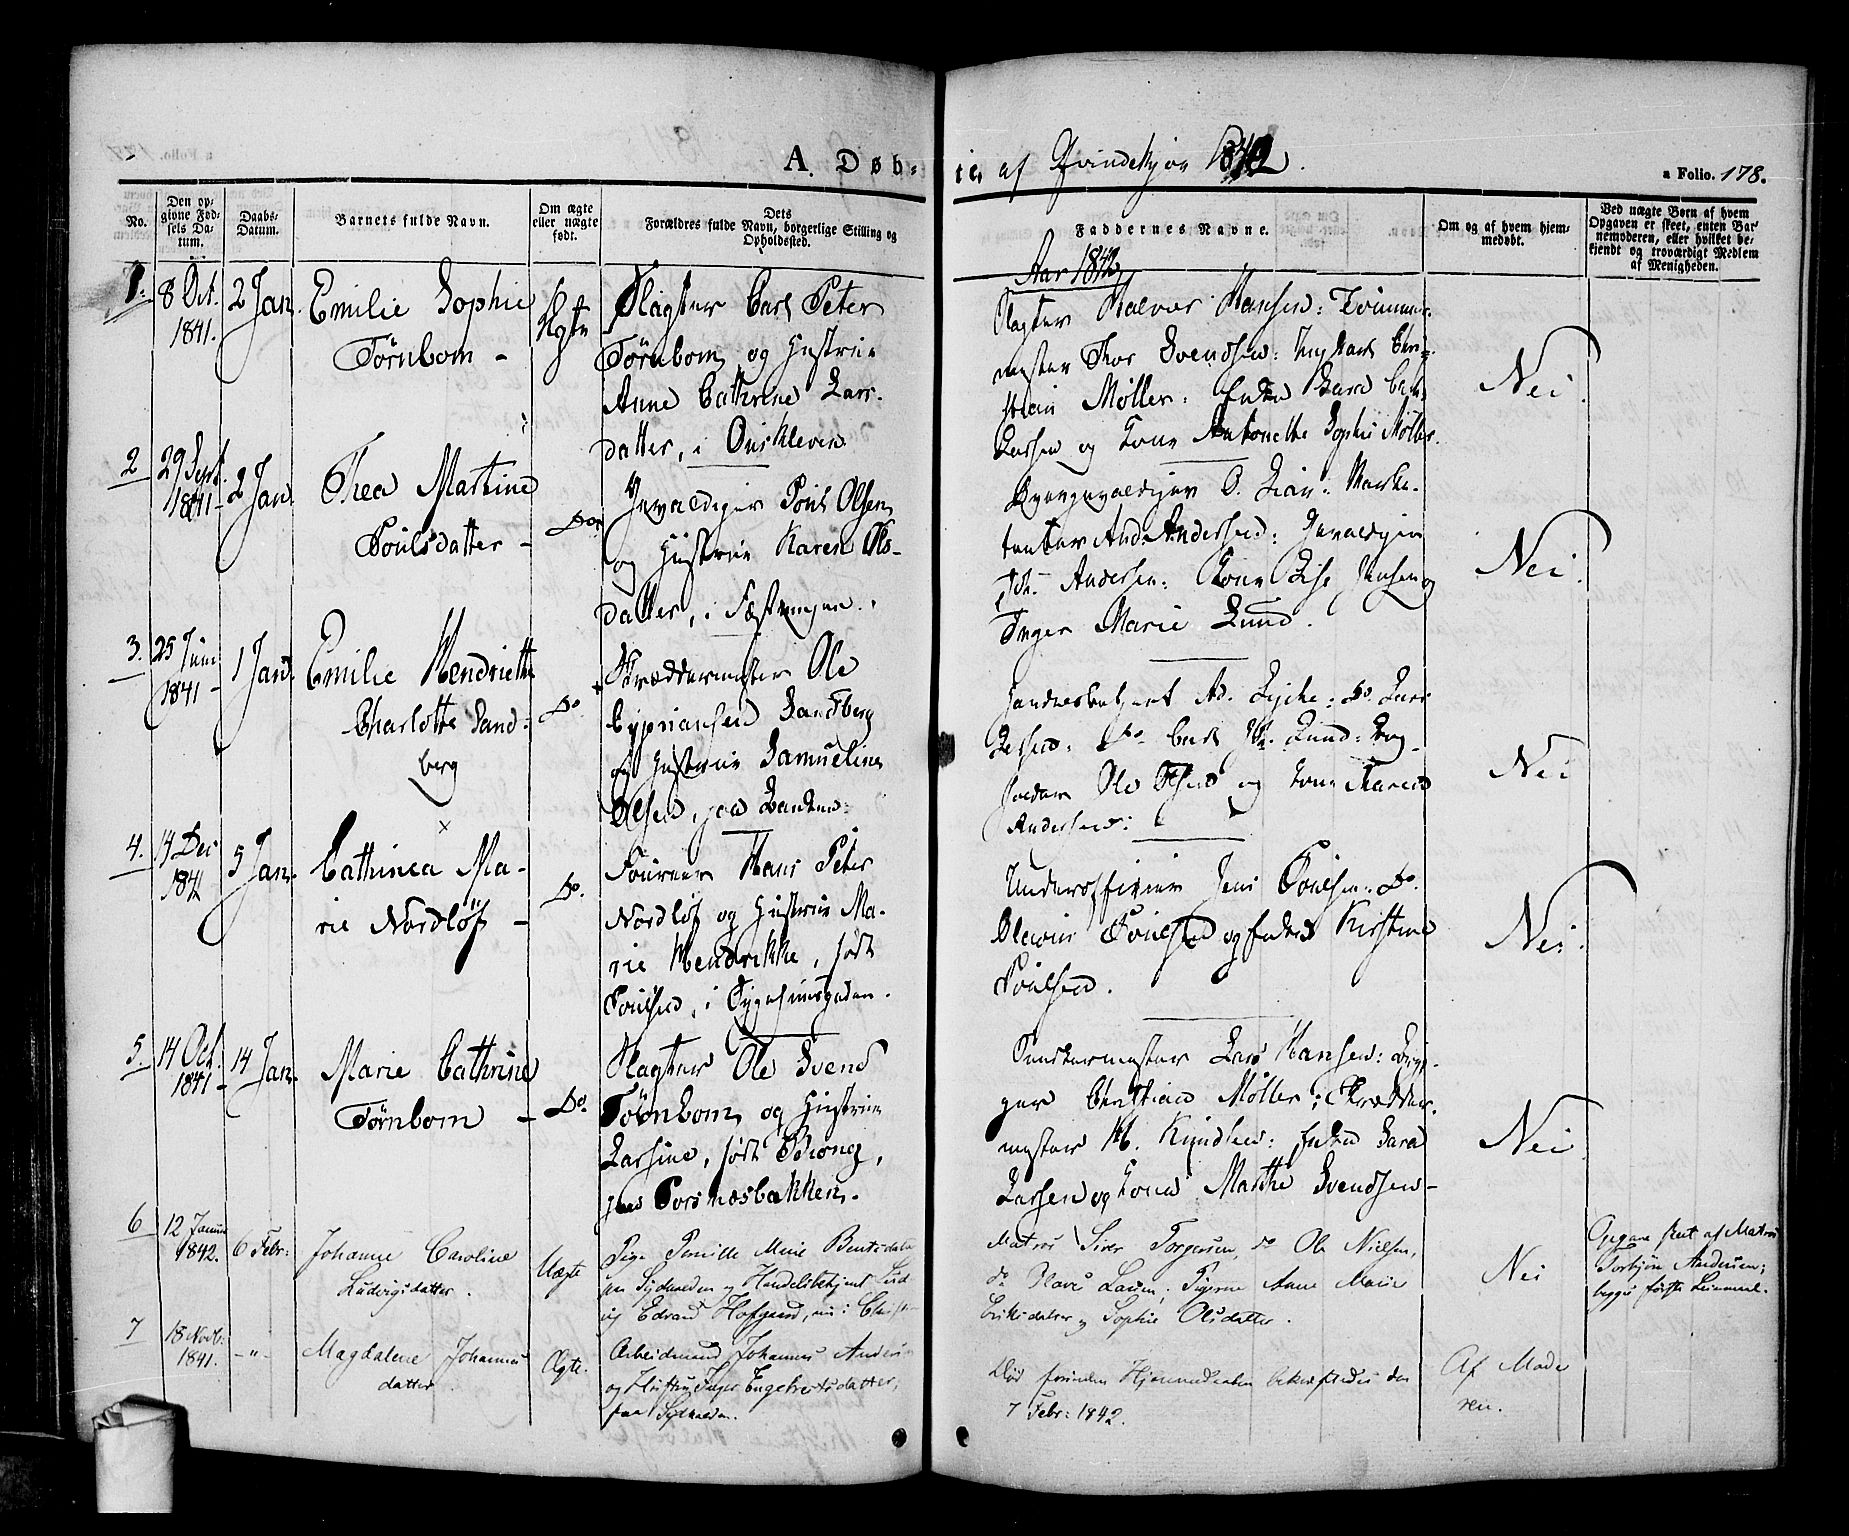 A. Døb-
te, af Qvindekjøn 1842.
a Folio. 178.
No.
Den op-
givne Fød-
sels Da-
tum.
Daabs-
Datum.
Barnets fulde Navn.
Om ægte
eller uægte
født.
Dets
Forældres fulde Navn, borgerlige Stilling og
Opholdssted.
Faddernes Navne.
Om og af hvem hjem-
medøbt.
Ved uægte Børn af hvem
Opgaven er skeet, enten Bar-
nemoderen, eller hvilket be-
kjendt og troværdigt Medlem
af Menigheden.
Aar 1842
1.
8 Oct.
1841.
2 Jan.
Emilie Sophie
Törnbom -
Ægte
Slagter Carl Peter
Törnbom og Hustrue
Anne Cathrine Lars-
datter, i
Slagter Halvor Hansen: Tømmer-
mester Thor Svendsen: Chri-
stian Møller: Enken Sara
Larsen og Kone Antonette Sophie Møller.
Nei.
2
29 Sept.
1841-
2 Jan.
Thea Martine
Poulsdatter -
Do.
Gevaldiger Poul Olsen
og Hustrue Karen Ols-
datter, i Fæstningen.
And. Andersen: Gevaldiger
Andersen: Kone Lise Jensen og
Inger Marie Lund.
Nei.
3.
25 Juni
1841-
1 Jan.
Emilie Hendriette
Charlotte Sand-
berg
Do
Skræddermester Ole
Cypriansen Sandberg
og Hustrue Samueline
Olsen, paa Banken:
Handelsbetjent Ad. Lyche: Do. Lars
Do. Carl Lund:
Ole Olsen og Kone Maren
Andersen:
Nei
4.
14 Dec
1841
5 Jan.
Cathinca Ma-
rie Nordlöf -
Do.
Foureer Hans Peter
Nordlöf og Hustrue Ma-
rie Hendrikke, født
Poulsen, i Tyghuusgaden.
Underofficier Jens Poulsen: Do.
Poulsen og Enken Kirstine
Poulsen.
Nei.
5.
14 Oct.
1841-
14 Jan.
Marie Cathrine
Törnbom -
Do.
Slagter Ole Svend
Törnbom og Hustrue
Larsine, født Brong,
paa Torsnæsbakken.
Lars Hansen: Bryg-
ger Christian Møller: Skrædder-
mester H. Knudsen: Enken Sara
Larsen og Kone Marthe Svendsen-
Nei
6
12 Januar
1842.
6 Febr:
Johanne Caroline
Ludvigsdatter.
Uægte
Pige Pernille Marie Bentsdatter
paa Sydhalden og Handelsbetjent Lud-
vig Edvard Hofgaard, nu i Christn
Matros Siver Torgersen, do Ole Nielsen,
do Larsen, Pigerne Anne Marie
Eriksdatter og Sophie Olsdatter.
Nei
Opgave skeet af Matros
Torbjørn Andersen;
begges første Leiermaal.
7
18 Novb:
1841.
-"-
Magdalene Johannes
datter.
Ægte.
Arbeidsmand Johannes Andersen
og Hustru Inger Engebretsdatter,
paa Sydhalden.
Død forinden Hjemmedaaben bekræftedes den
7 Febr: 1842.
Af Mode
ren.